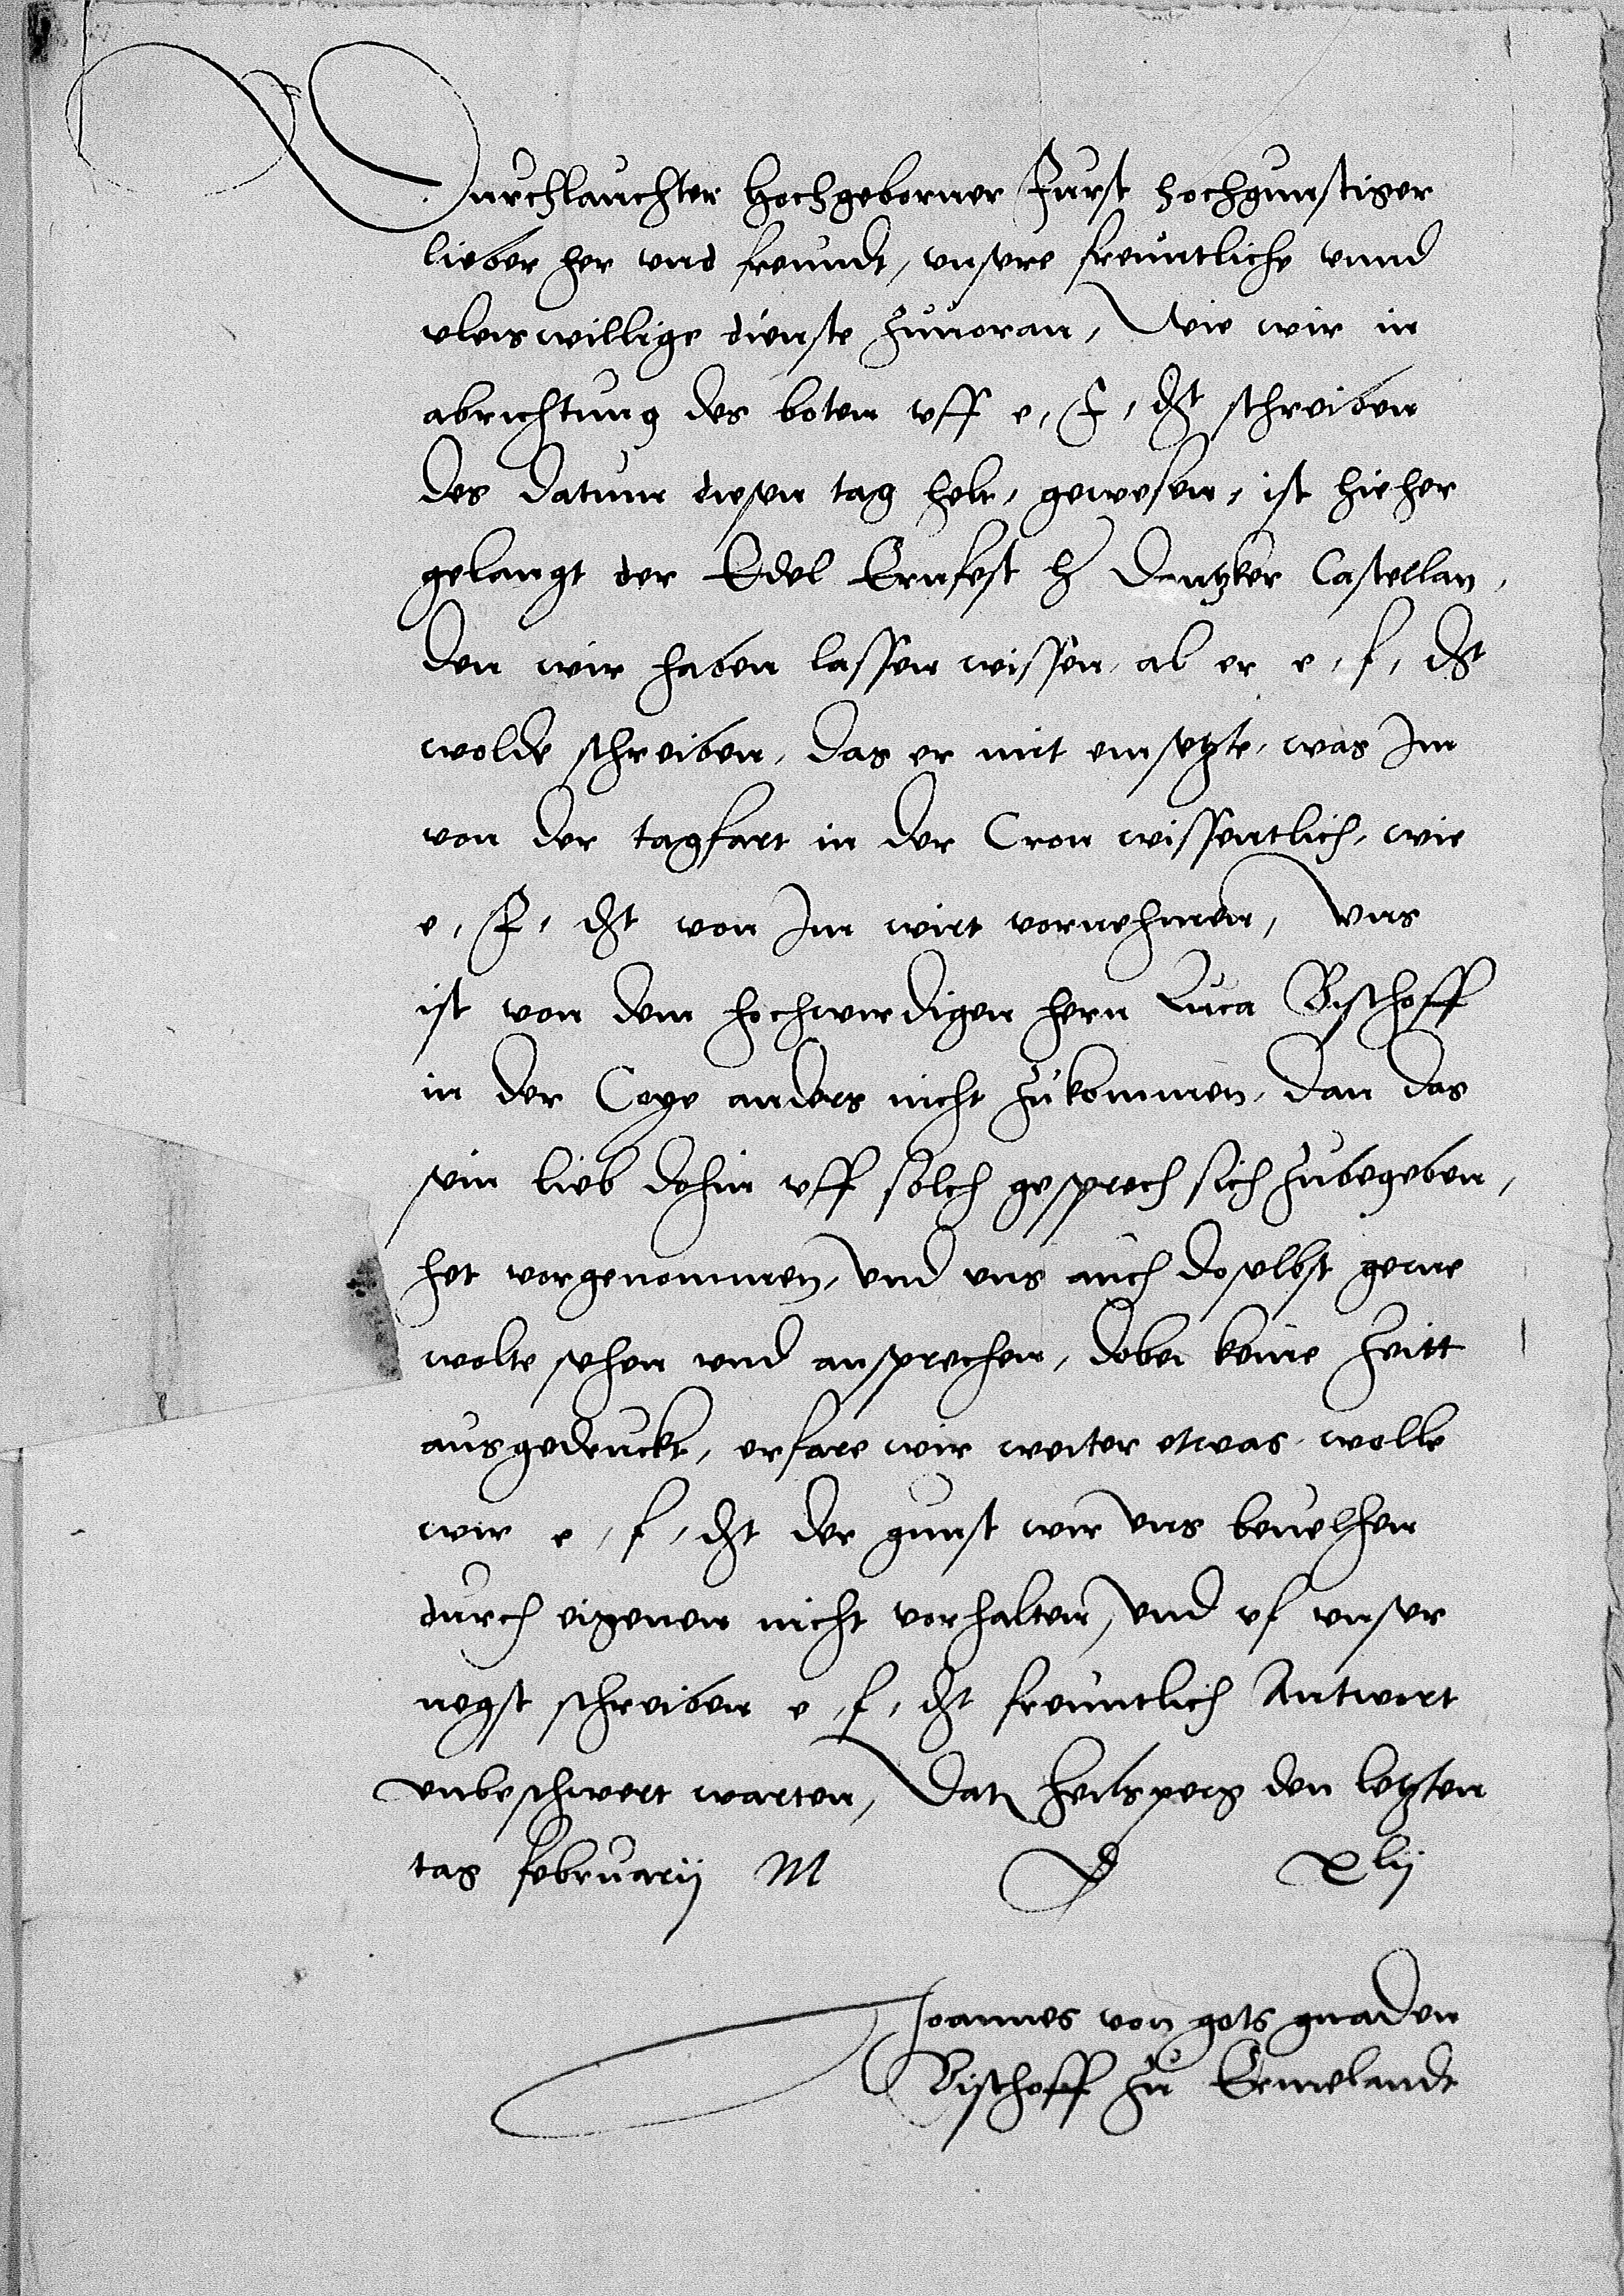 Durchlauchter Hochgeborner Furst hochgunstiger
lieber her und freundt, unsere freuntliche unnd
vleiswillige dienste zuuoran, Wie wir in
abrichtung des boten uff e, F, dt schreiben
des datum diesen tag helt, gewesen, ist hieher
gelangt der Edel Ernfest h Dantzker Castellan,
den wir haben lassen wissen, ab er e, f, dt
wolde schreiben, das er mit einsetzte, was Im
von der tagfart in der Cron wissentlich, wie
e, F, dt von Im wirt vornehmen, Uns
ist von dem hochwirdigen hern Luca Bischoff
in der Coye anders nicht zukommen, dan das
sein lieb dohin uff solch gesprech sich zubegeben,
het vorgenommen, und uns auch doselbst gerne
wolte sehen und ansprechen, dobei keine zeitt
ausgedruckt, erfare wir weiter etwas, wolle
wir e, f, dt der gunst wir uns beuelhen
durch eigenen nicht vorhalten, und uf unser
negst schreiben e, f, dt freuntlich Antwort
unbeschwert warten, Dat Heilsperg den letzten
tag februarij M D Xlij
Joannes von gots gnaden
Bischoff zu Ermelandt